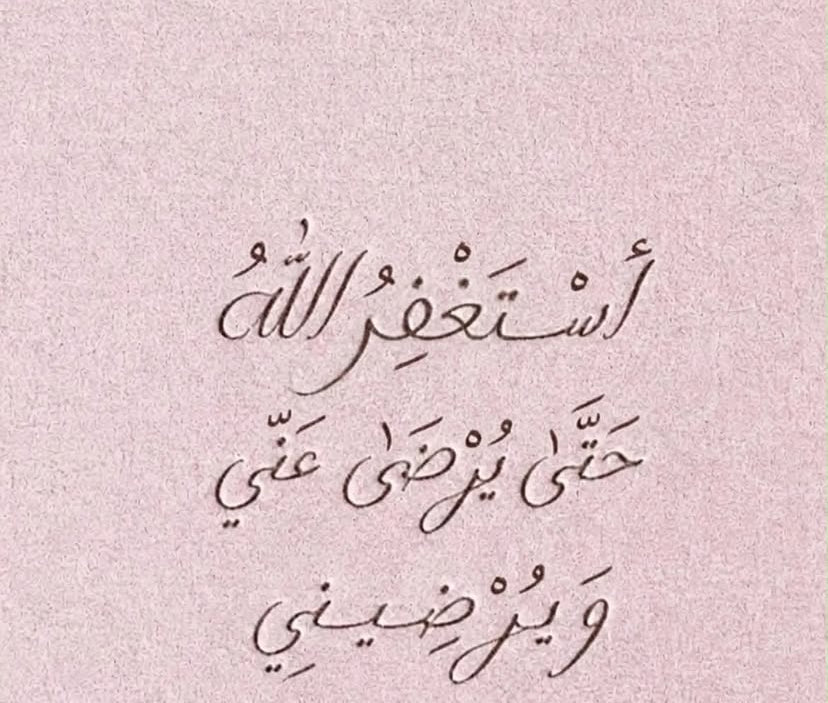 أَسْتَغْفِرُ اللّٰهُ
حَتَّىٰ يُرْضَىٰ عَنّي
وَيُرْضِينِي